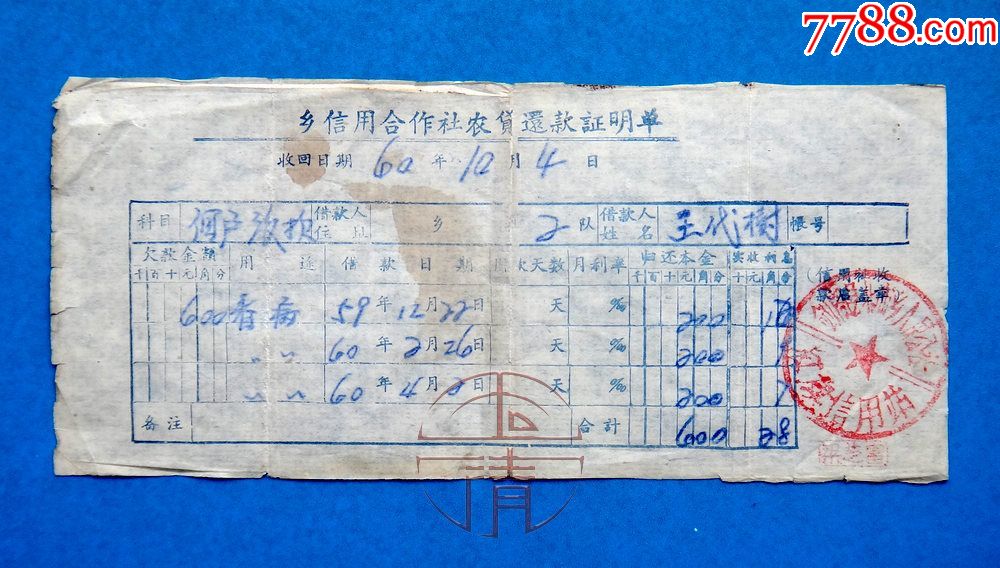 7788.com
乡信用合作社农貸還款証明单
收回日期 60 年 10 月 4 日
科目 借款人住址 乡 2 队 借款人姓名 王代樹 帳号
欠款金額 千百十元角分 用途 借款日期 天数 月利率 归还本金 千百十元角分 实收利息 十元角分 (信用社收
600 看病 59 年 12 月 22 日 天 ‰ 200
〃 〃 60 年 2 月 26 日 天 ‰ 200
〃 〃 60 年 4 月 2 日 天 ‰ 200
备注 合計 600 28
信用站